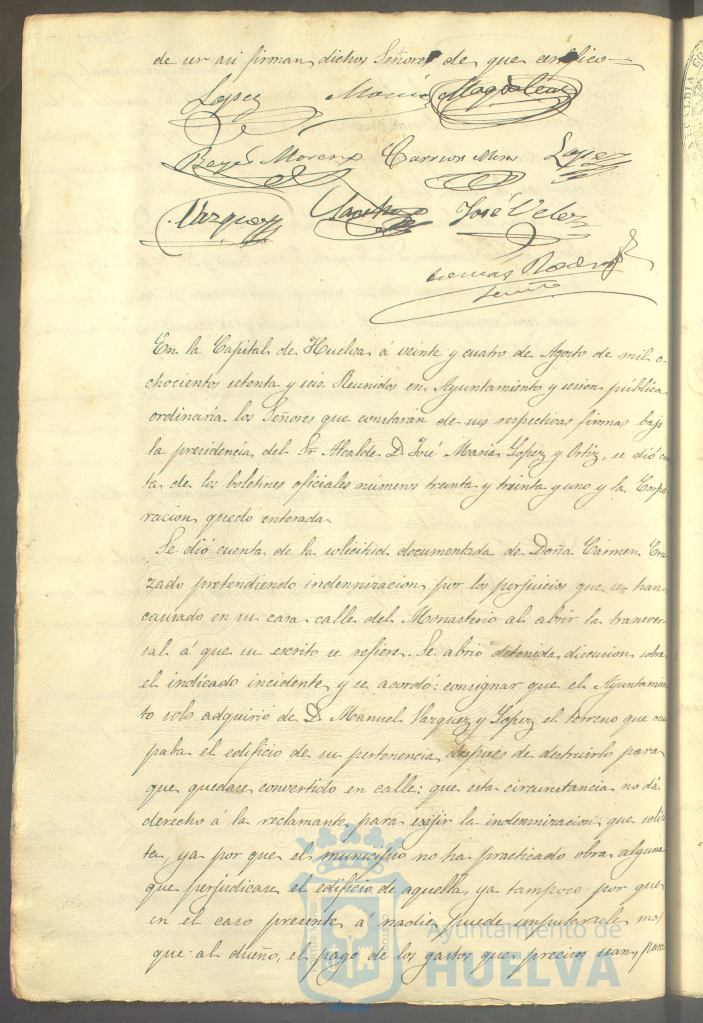 de ser asi firman dichos Señores de que certifico
Lopez Maria Magdalena
Reyes Moreno Carrion Mora Lopez
Vazquez Sanchez José Velez
Tomás
En la Capital de Huelva á veinte y cuatro de Agosto de mil o-
chocientos setenta y seis. Reunidos en Ayuntamiento y sesion pública
ordinaria los Señores que constarán de sus respectivas firmas bajo
la presidencia del Sr. Alcalde D. José Maria Lopez y Ortiz, se dió cu
ta de los boletines oficiales números treinta y treinta y uno y la Corpo
racion quedó enterada.
Se dió cuenta de la solicitud documentada de Doña Cármen Cru
zado pretendiendo indemnizacion por los perjuicios que se han
causado en su casa calle del Monasterio al abrir la transver
sal á que su escrito se refiere. Se abrió detenida discusion sobre
el indicado incidente y se acordó: consignar que el Ayuntamien
to solo adquirió de D. Manuel Vazquez y Lopez el terreno que ocu
paba el edificio de su pertenencia despues de destruirlo para
que quedase convertido en calle: que esta circunstancia no dá
derecho á la reclamante para exijir la indemnizacion que solici
ta, ya por que el municipio no ha practicado obra alguna
que perjudicase el edificio de aquella, ya tampoco por que
en el caso presente á nadie puede imputarsele mas
que al dueño, el pago de los gastos que precisos sean, para
Ayuntamiento de
HUELVA
ALCALDIA